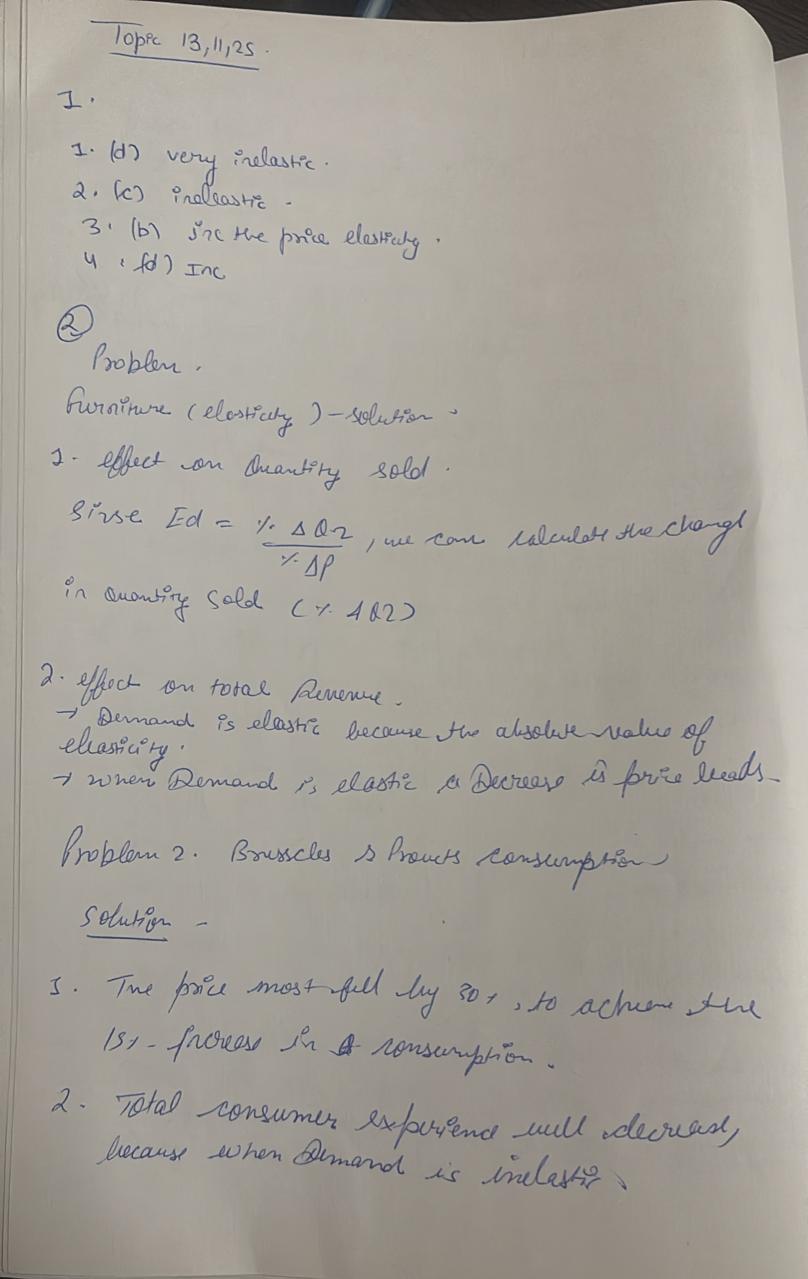 Topic 13,11,25.
1.
1. (d) very inelastic.
2. (c) inaleastic -
3. (b) inc the price elasticity.
4. (d) Inc
2
Problem.
furniture (elasticity) - solution.
1- effect on Quantity sold.
Sinse Ed = % Δ Q2 / % ΔP, we can calculate the change
in Quantity sold (% Δ Q2)
2. effect on total Revenue.
→ Demand is elastic because the absolute value of
eleasticity.
→ when Demand is elastic a Decrease is price leads-
Problem 2. Brusscles sprouts consumption
Solution -
1. The price most fall by 30%, to achieve the
15% - Increase in consumption.
2. Total consumer experience will decrease,
because when Demand is inelastic.